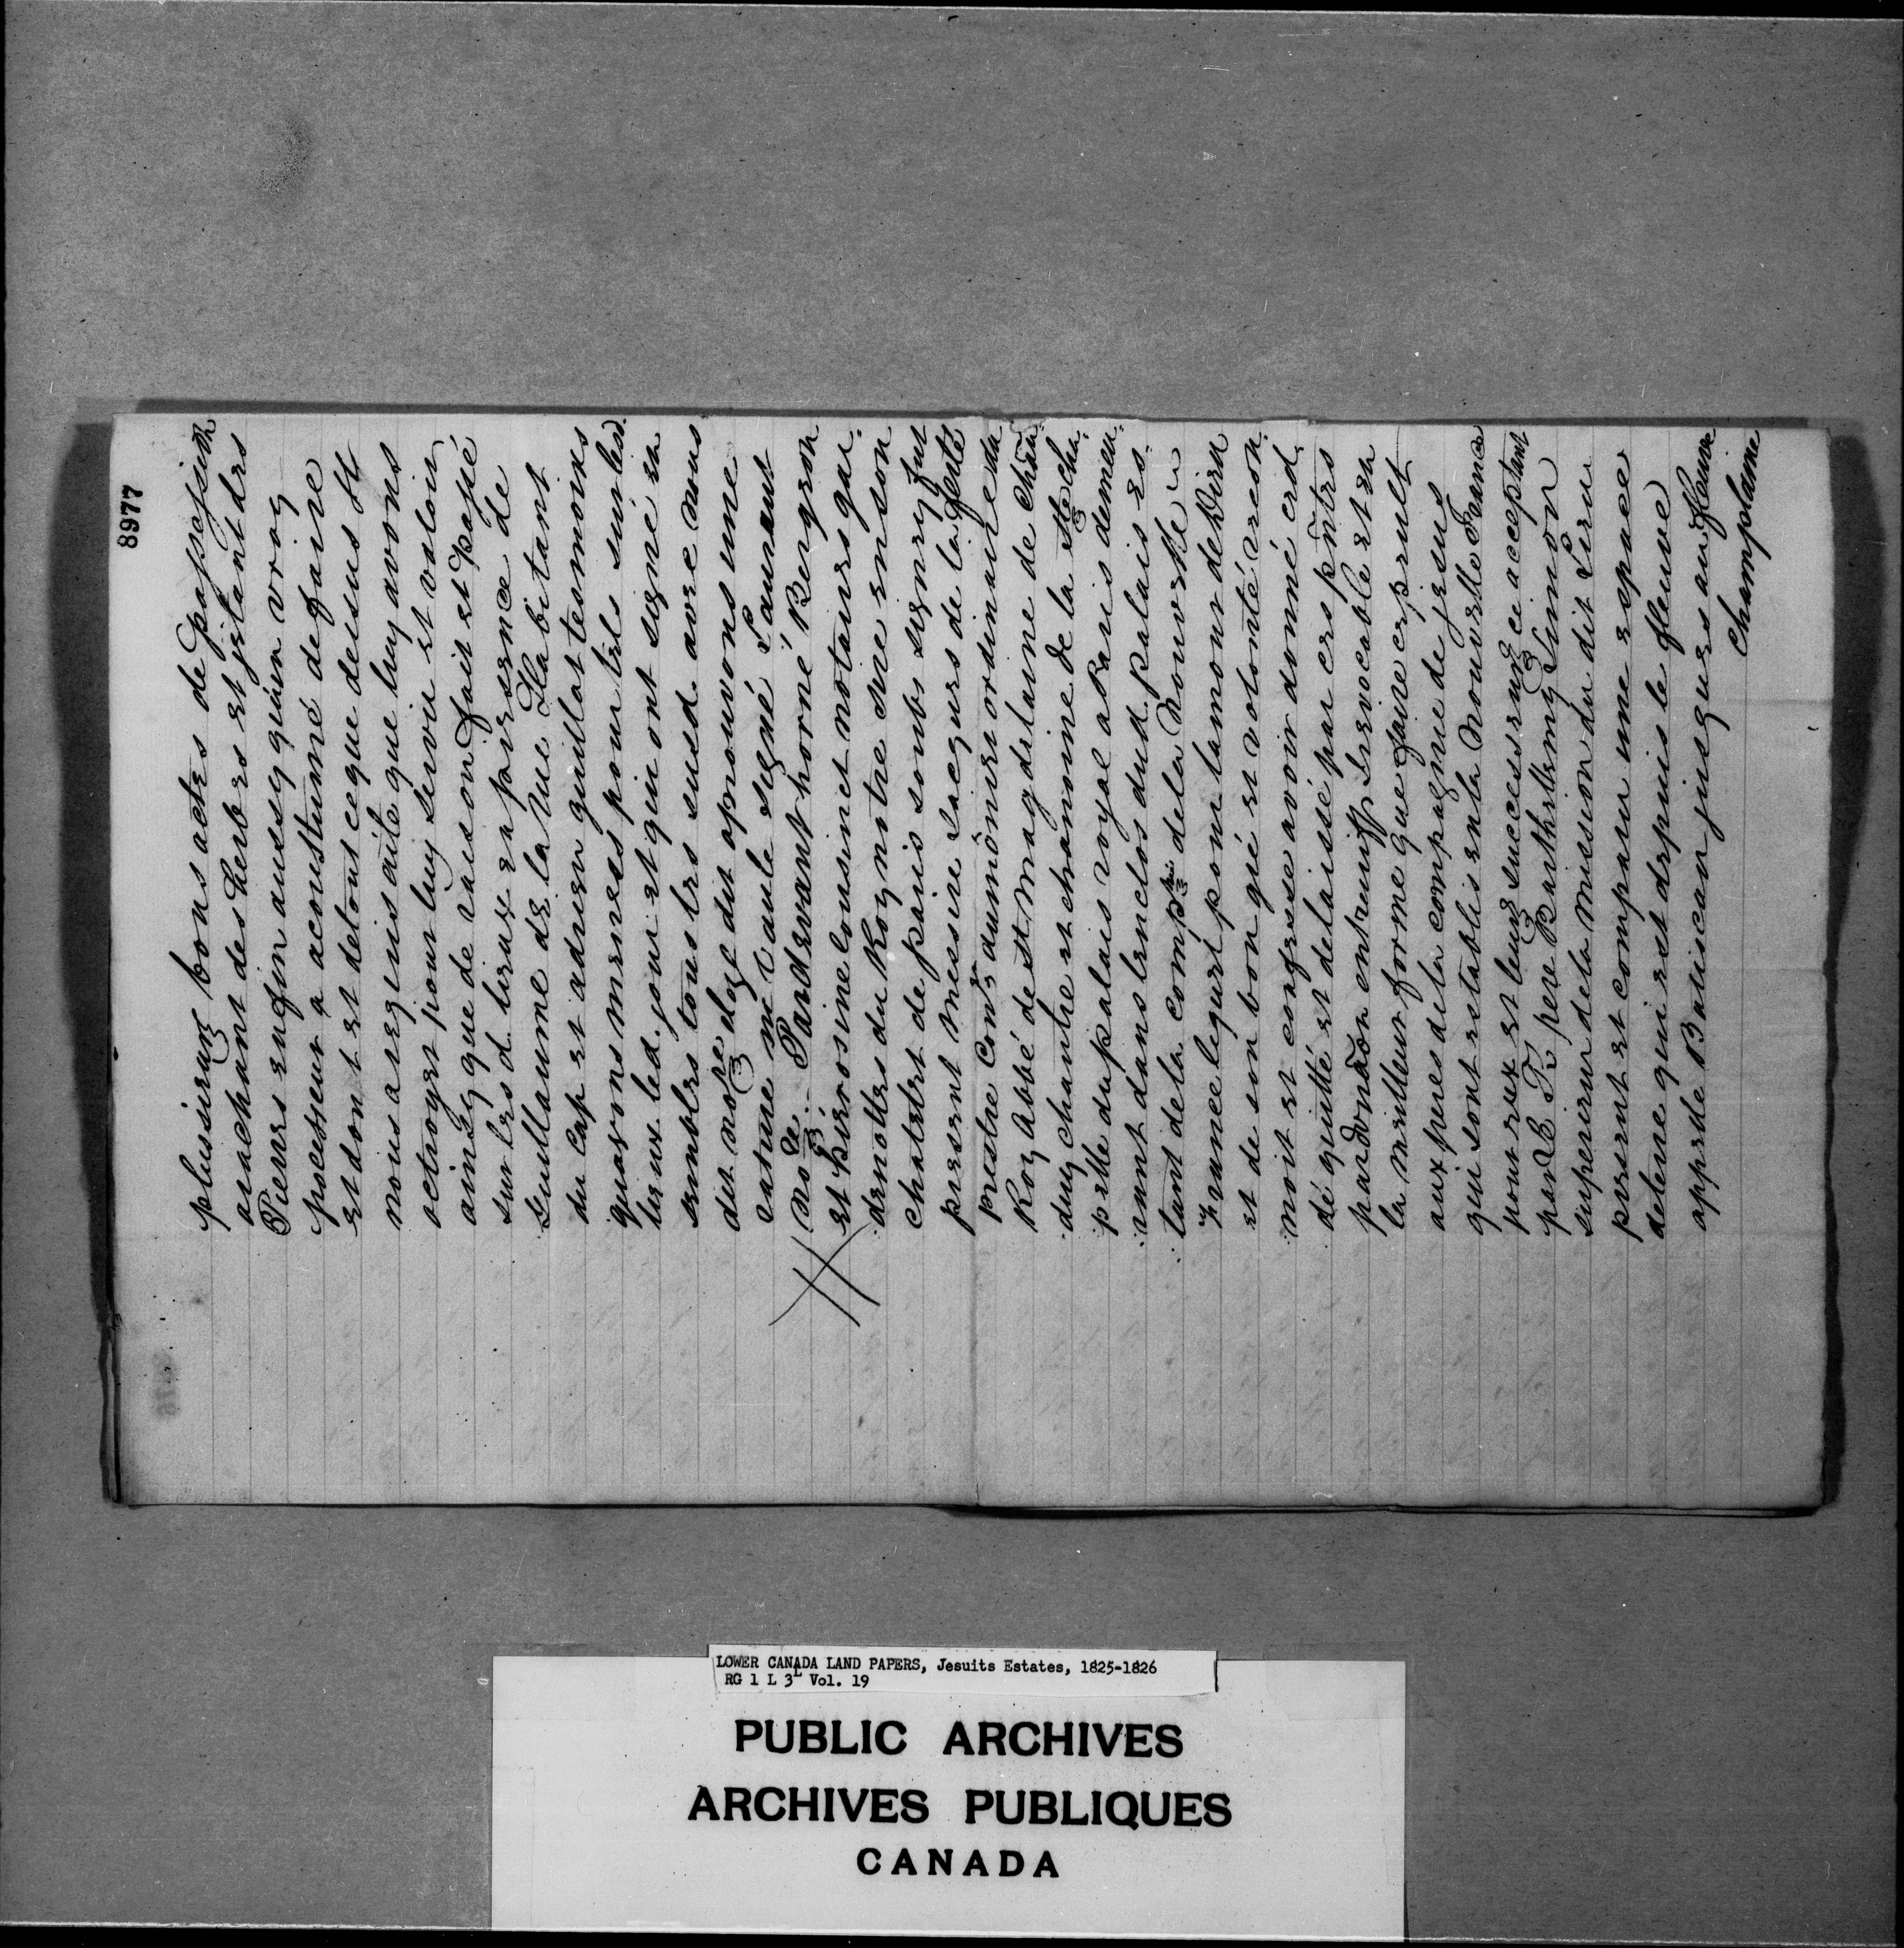 8977
plusieurs bons actes de possession
arachant des herbes et jetant des
Pierres enfin aussy quúnvray
pocesseur a acoustumé defaire
et dont et detout ceque dessus st
nous a requis acte que luy avons
octroyet pour luy servir et valoir
ainsy que de raison fait et passé
sur lesd. lieux en presence de
Guillaume de la Rue Habitant
du Cap et adrien guillot tesmoins
quavons menees pour tels sur lesd.
lieux led. jour et qui ont signé en
sembles tous les susd. avec nous
dit no.re alosse dit aprouvons une
rature me vaule signé Laurent
no.re Pardevant horné Bergeon
et Pierosine Cousinet notaires gar
denottes du Roy notre sire enson
chatelet de paris soubs signez fut
present Messire Jacques de la ferté
prestre Con.er dumônier ordinaire du
Roy Abbé de st Magdelaine de Chãu
duy chantre et chanoine de la ste cha
pelle dupalais royal a Paris demeu
rant dans lenclos dud. palais es
tant dela comp.nie dela Nouvelle
France lequel pour lamour de Dieu
et de son bon gré et volonté recon
noit et confesse avoir donné ced
dé quitté et delaissé par ces pñtes
par donaõn entrevifs Irevocable et en
la meilleur forme que faire ce peult
aux peres dela compagnie de jesus
qui sont establis enla Nouvelle France
pour eux et leurs successeurs ce acceptant
par le R pere Barthellemy Simon
superieur dela Mission du dit Lieu
present et comparu une espace
deterre qui est depuis le fleuve
appelle Batiscan jusques au fleuve
Champlaine
LOWER CANADA LAND PAPERS, Jesuits Estates, 1825-1826
RG 1 L 3L Vol. 19
PUBLIC ARCHIVES
ARCHIVES PUBLIQUES
CANADA